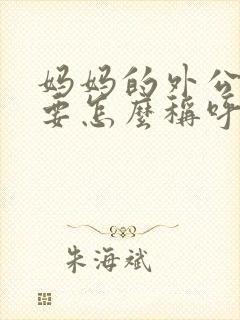 妈妈的外公
要怎麼稱呼
朱海斌